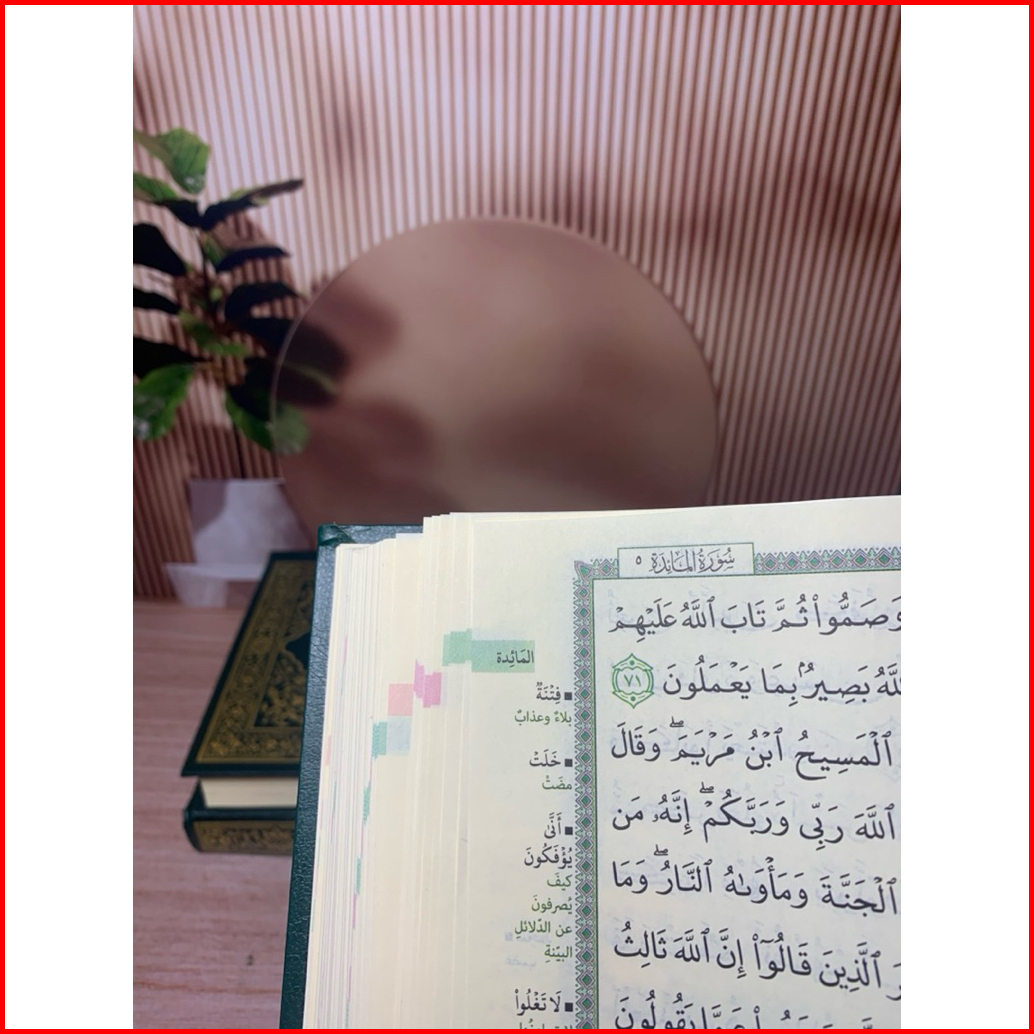 سُورَةُ المَائِدَةِ ٥
وَصَمُّوا۟ ثُمَّ تَابَ ٱللَّهُ عَلَيْهِمْ
ٱللَّهُ بَصِيرٌۢ بِمَا يَعْمَلُونَ ٧١
ٱلْمَسِيحُ ٱبْنُ مَرْيَمَ ۖ وَقَالَ
ٱللَّهَ رَبِّى وَرَبَّكُمْ ۖ إِنَّهُۥ مَن
ٱلْجَنَّةَ وَمَأْوَىٰهُ ٱلنَّارُ ۖ وَمَا
ٱلَّذِينَ قَالُوٓا۟ إِنَّ ٱللَّهَ ثَالِثُ
يَقُولُونَ
المَائِدة
■ فِتْنَةٌ
بلاءٌ وعذابٌ
■ خَلَتْ
مضَتْ
■ أَنَّىٰ
يُؤْفَكُونَ
كيفَ
يُصرفونَ
عن الدّلائلِ
البيّنةِ
■ لَا تَغْلُوا۟